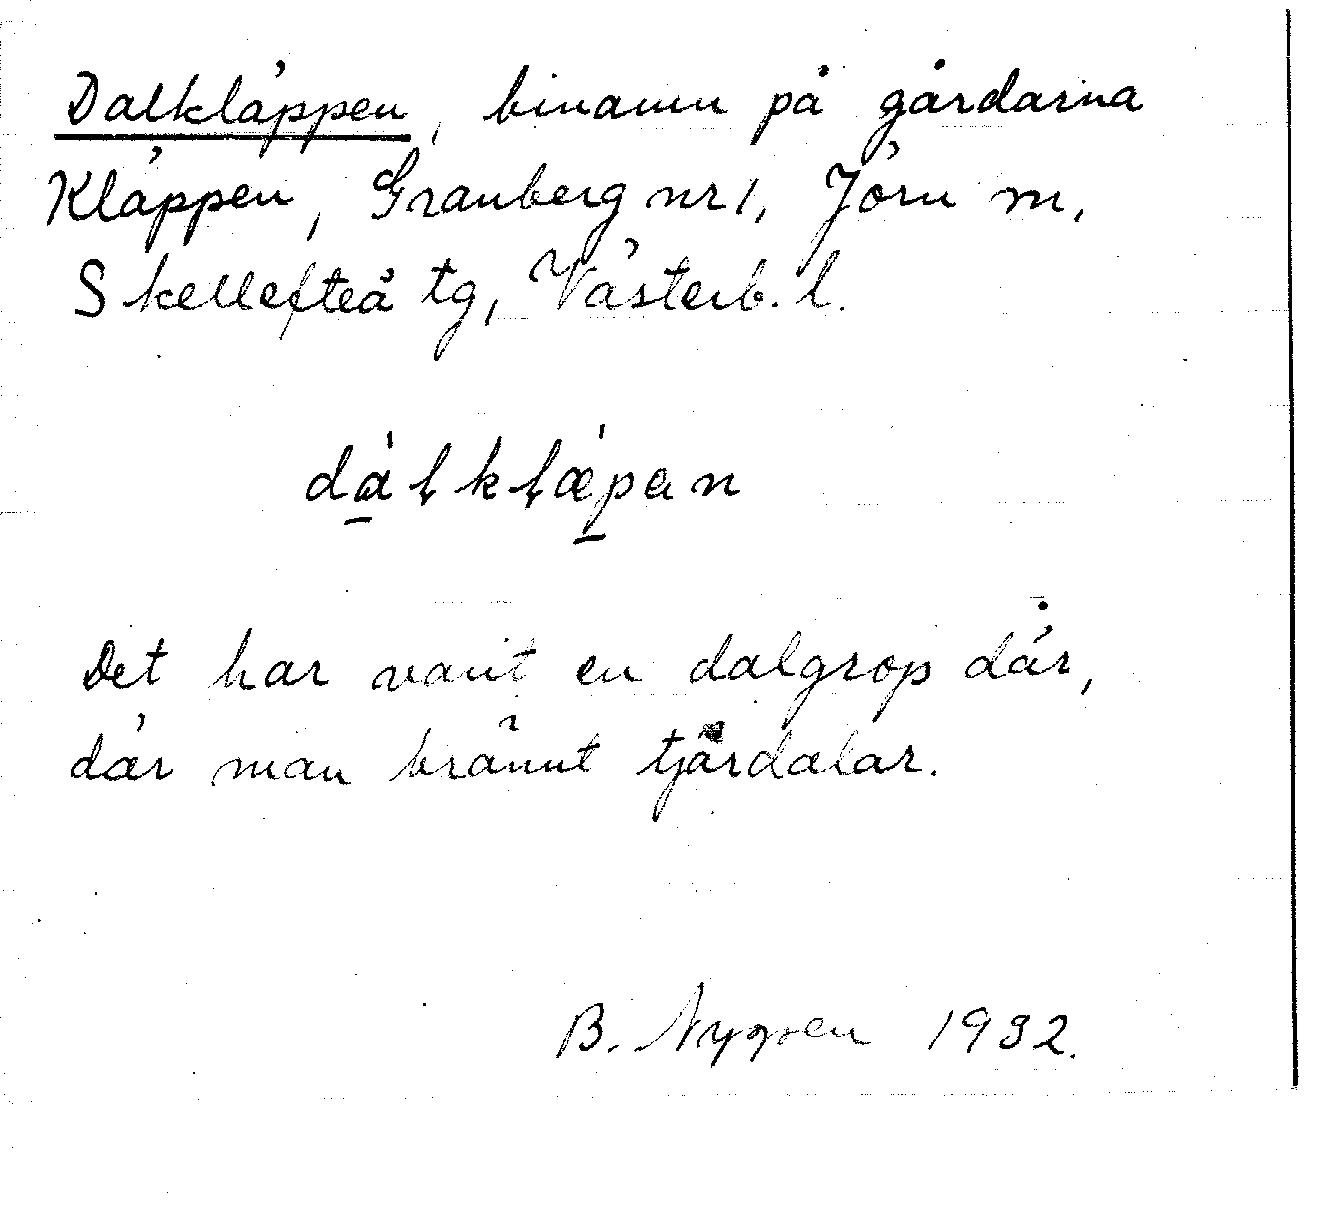 Dalkläppen, binamn på gårdarna
Kläppen, Granberg nr 1, Jörn m,
Skellefteå tg, Västerb. l.
dàlkḷæpan
Det har varit en dalgrop där,
där man bränt tjärdalar.
B. Nygren 1932.